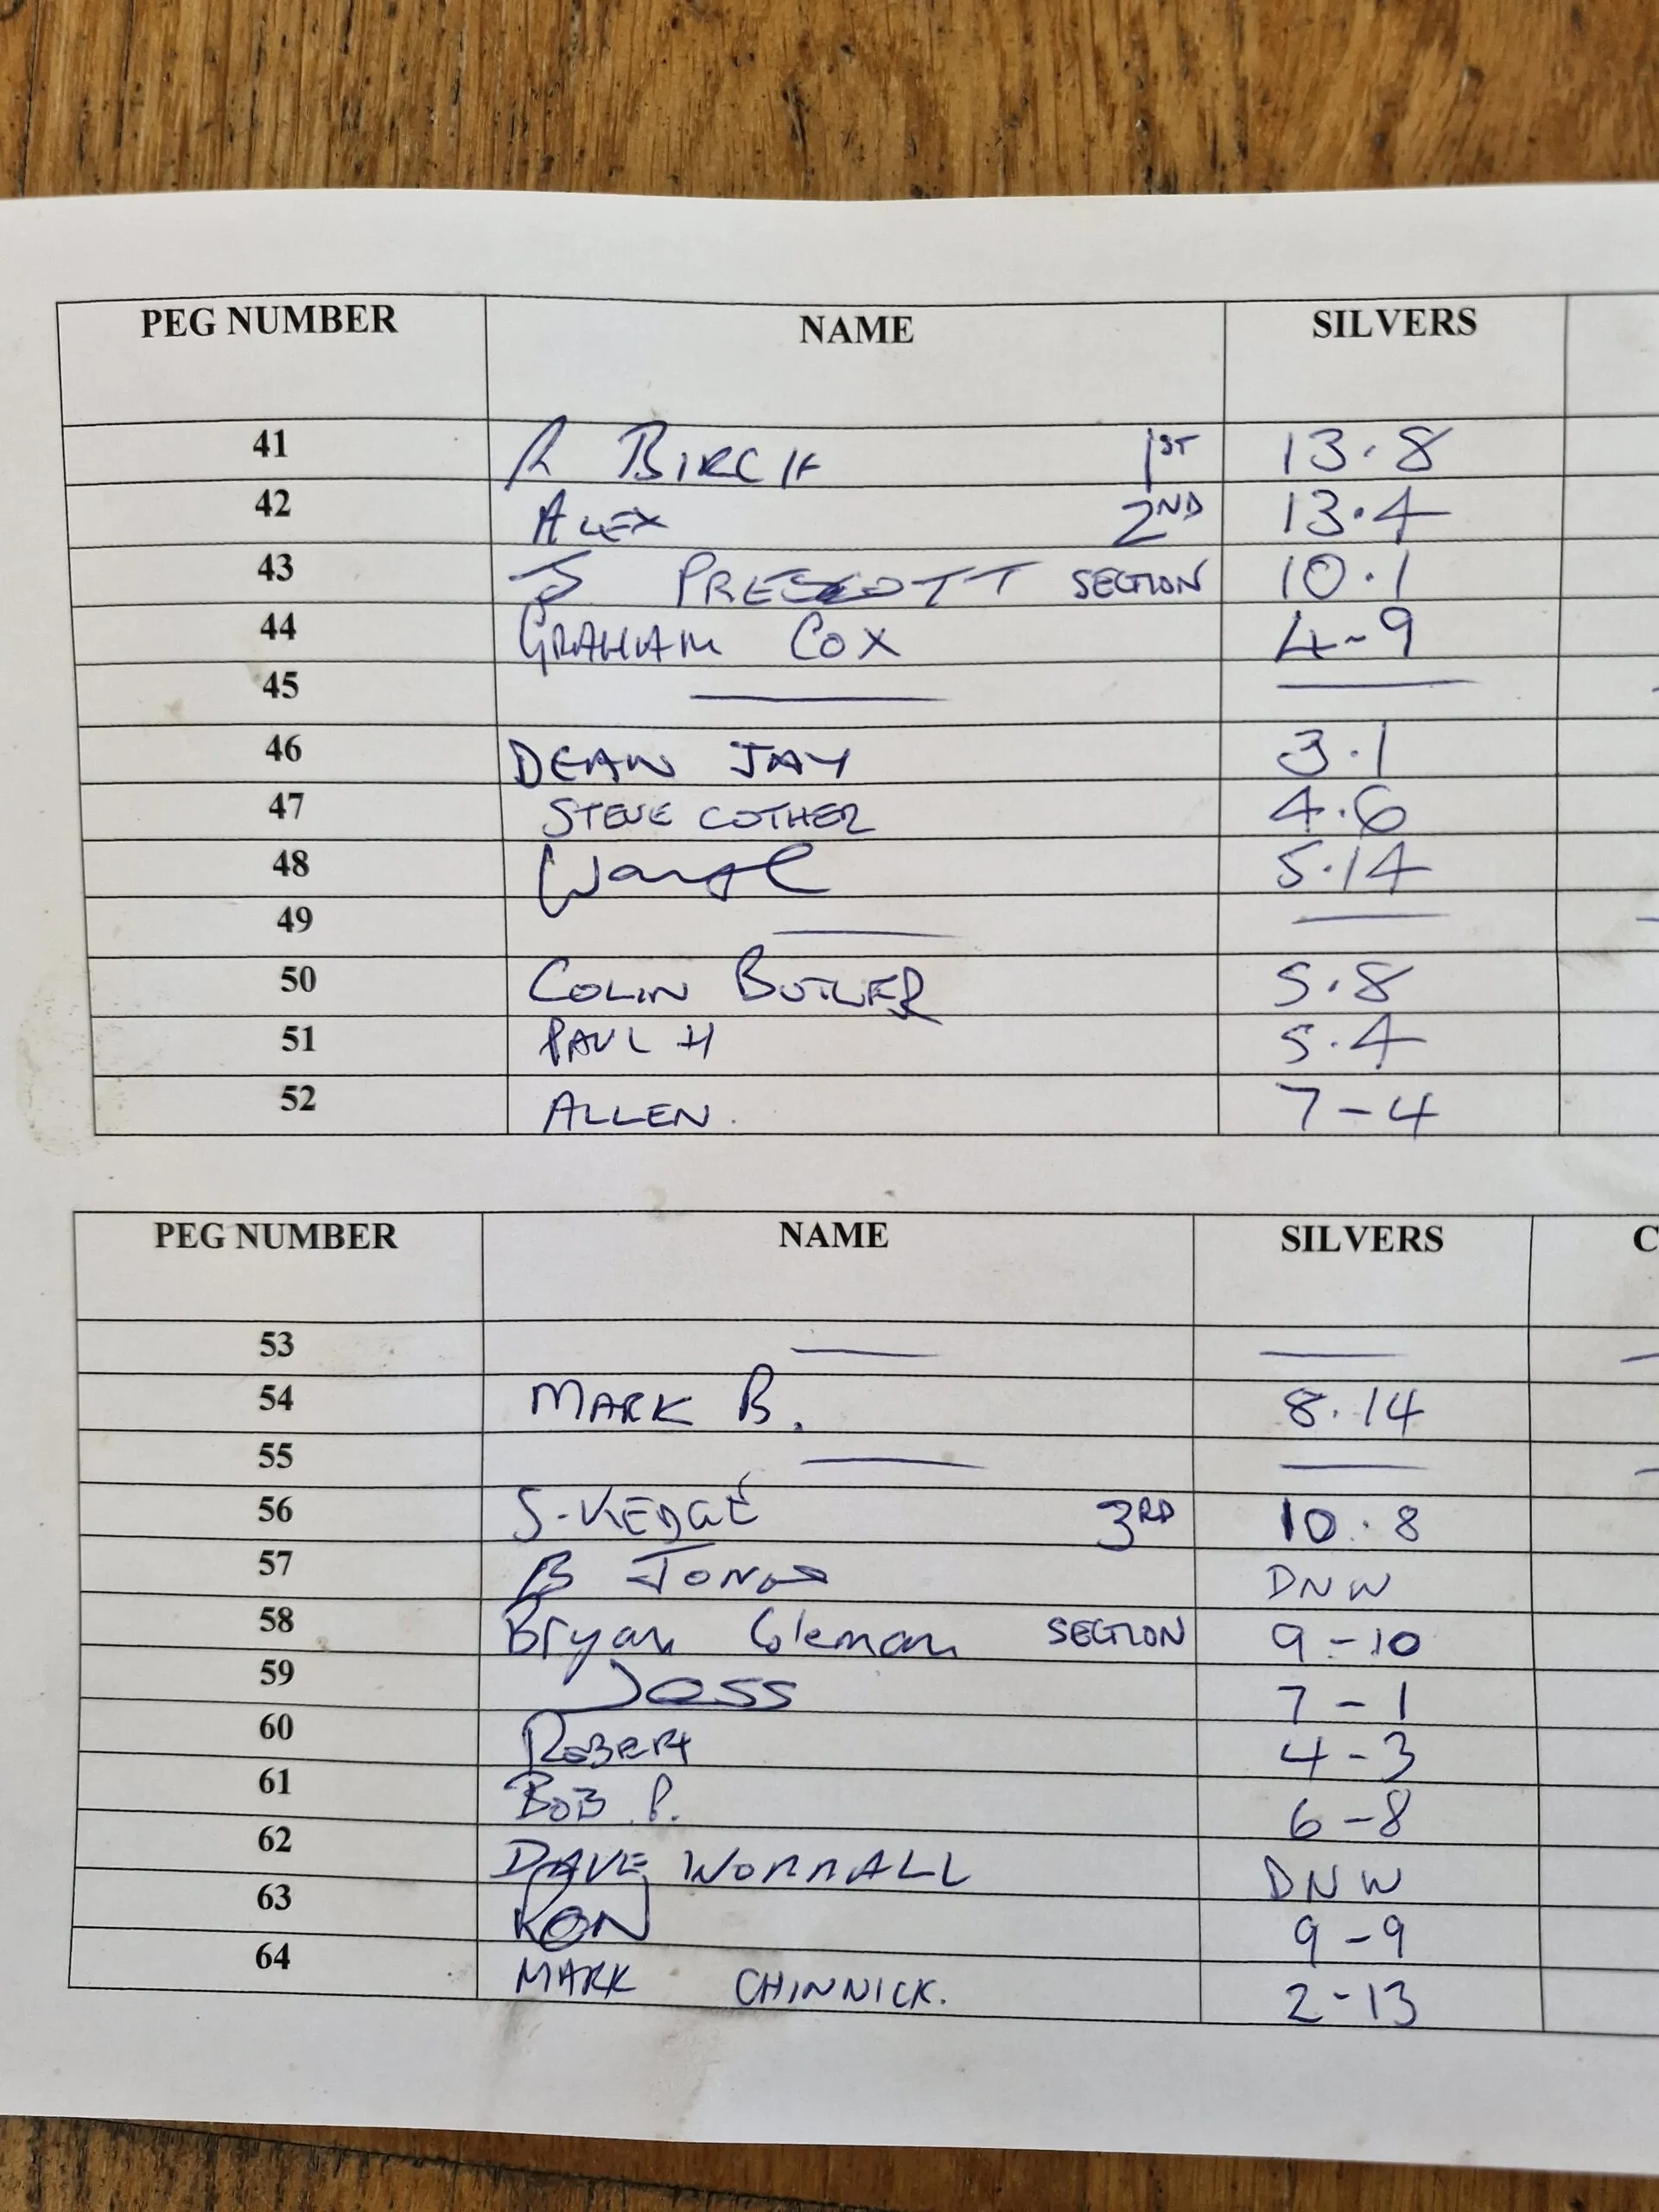 PEG NUMBER NAME SILVERS
41 R BIRCH 1ST 13.8
42 ALEX 2ND 13.4
43 J PRESCOTT SECTION 10.1
44 GRAHAM COX 4-9
45
46 DEAN JAY 3.1
47 STEVE COTHER 4.6
48 5.14
49
50 COLIN BUTLER 5.8
51 PAUL H 5.4
52 ALLEN. 7-4
PEG NUMBER NAME SILVERS C
53
54 MARK B. 8.14
55
56 S-KEDGE 3RD 10.8
57 B JONES DNW
58 Bryan Coleman SECTION 9-10
59 JOSS 7-1
60 ROBERT 4-3
61 BOB P. 6-8
62 DAVE WORRALL DNW
63 RON 9-9
64 MARK CHINNICK. 2-13